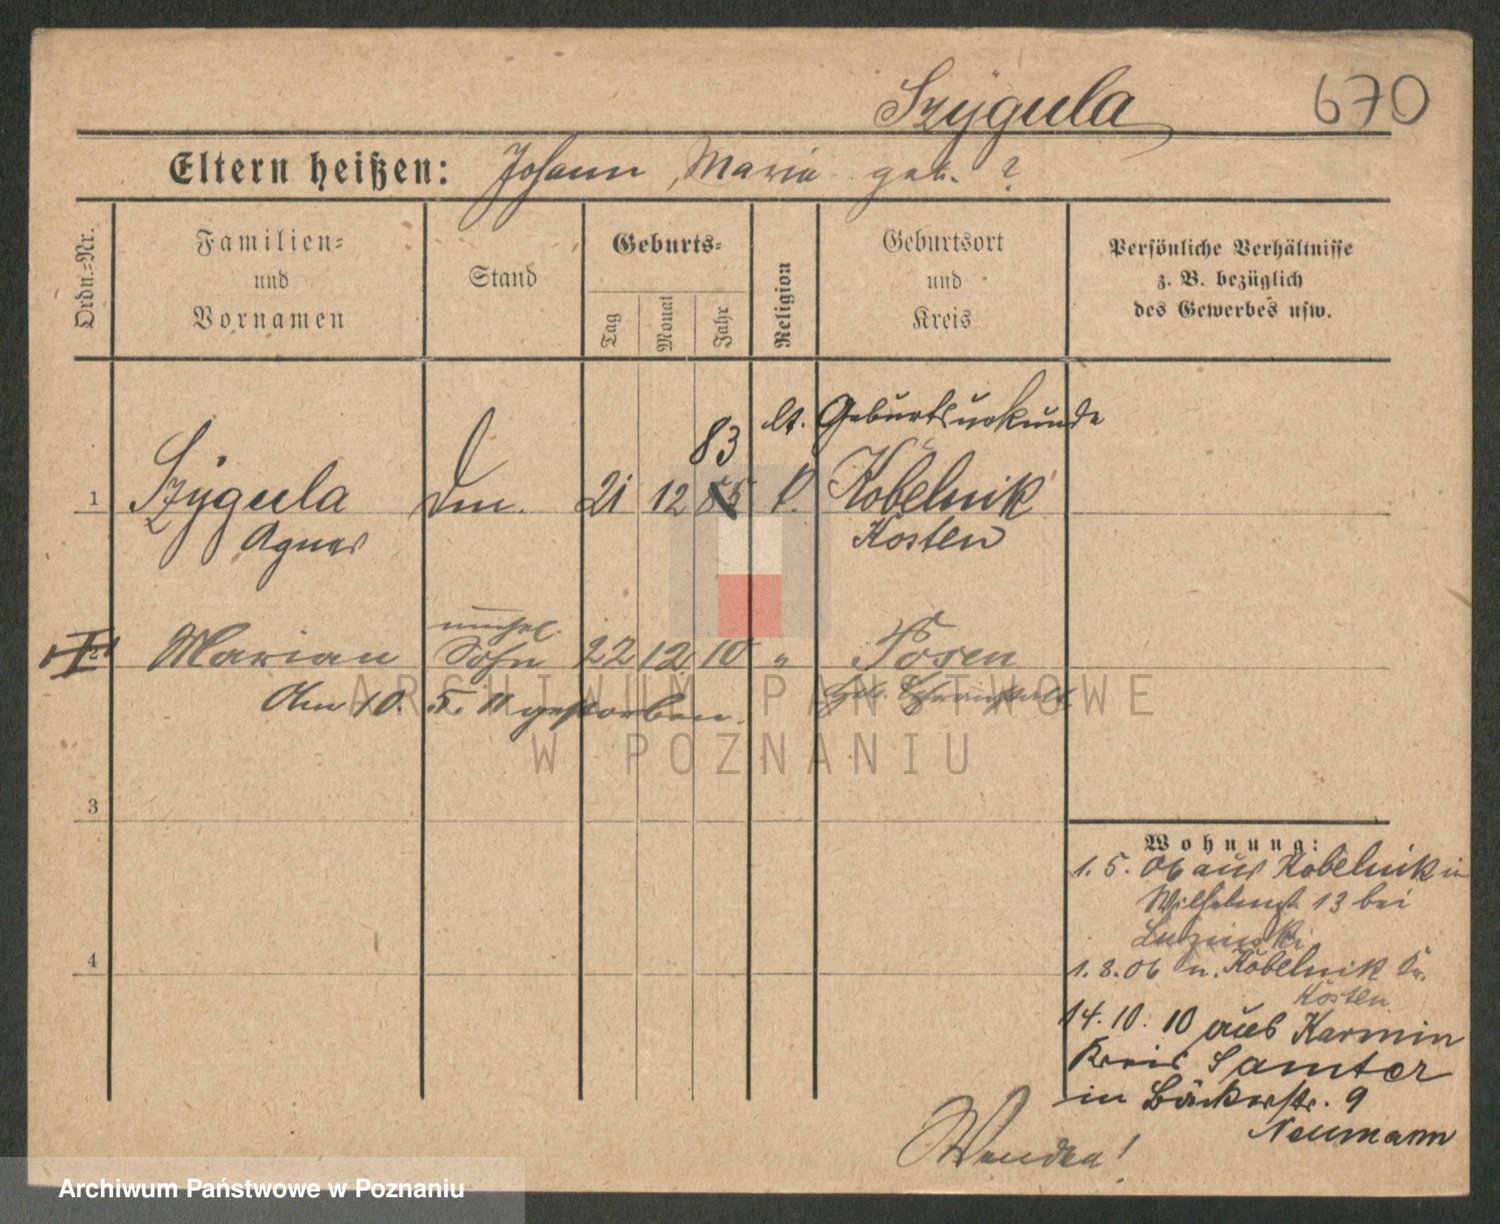 Szÿgula 670
Eltern heißen: Johann, Maria geb. ?
Ordn.-Nr.
Familien- und Vornamen
Stand
Geburts-
Tag
Monat
Jahr
Religion
Geburtsort und Kreis
Persönliche Verhältnisse
z. B. bezüglich
des Gewerbes usw.
lt. Geburtsurkunde
83
1 Szÿgula 21 12 85 k. Kobelnik
Agnes Kosten
unehel.
2 Marian Sohn 22 12 10 " Posen
Am 10. 5. 11 gestorben.
ARCHIWUM PAŃSTWOWE
W POZNANIU
3
4
Wohnung:
1. 5. 06 aus Kobelnik in
Wilhelmst. 13 bei
1. 8. 06 n. Kobelnik Kr.
Kosten
14. 10. 10 aus Karmin
Kreis Samter
in Bäckerstr. 9
Neumann
Wenden!
Archiwum Państwowe w Poznaniu